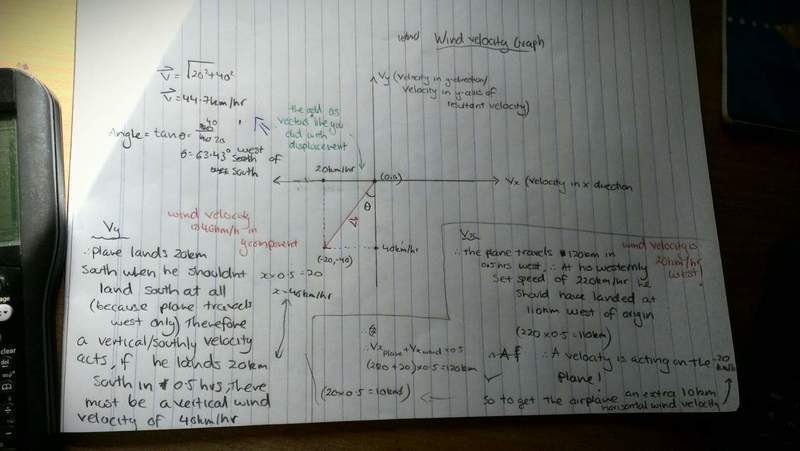 wind Wind velocity Graph
V = √20²+40²
V = 44.7km/hr
Angle = tanθ = 40
20
θ = 63.43° west
south of
south
the add as
vectors like you
did with
displacement
Vy (velocity in y-direction/
velocity in y-axis of
resultant velocity)
20km/hr
(0,0)
Vx (velocity in x direction
θ
wind velocity
is 40km/h in
y component
(-20,-40)
40km/hr
Vy
∴ plane lands 20km
South when he shouldnt
land south at all
(because plane travels
west only) Therefore
a vertical/southly velocity
acts, if he lands 20km
South in 0.5 hrs, there
must be a vertical wind
velocity of 40km/hr
x × 0.5 = 20
x = 40km/hr
Vx
∴ the plane travels 120km in
0.5 hrs west, ∴ At his westernly
Set speed of 220km/hr
Should have landed at
110km west of origin
(220 × 0.5 = 110km)
∴ A velocity is acting on the
plane!
So to get the airplane an extra 10km
horizontal wind velocity
20
km/hr
wind velocity is
20km/hr
west
∴ Vx plane + Vx wind × 0.5
(220 + 20) × 0.5 = 120km
(20 × 0.5 = 10km)
clear